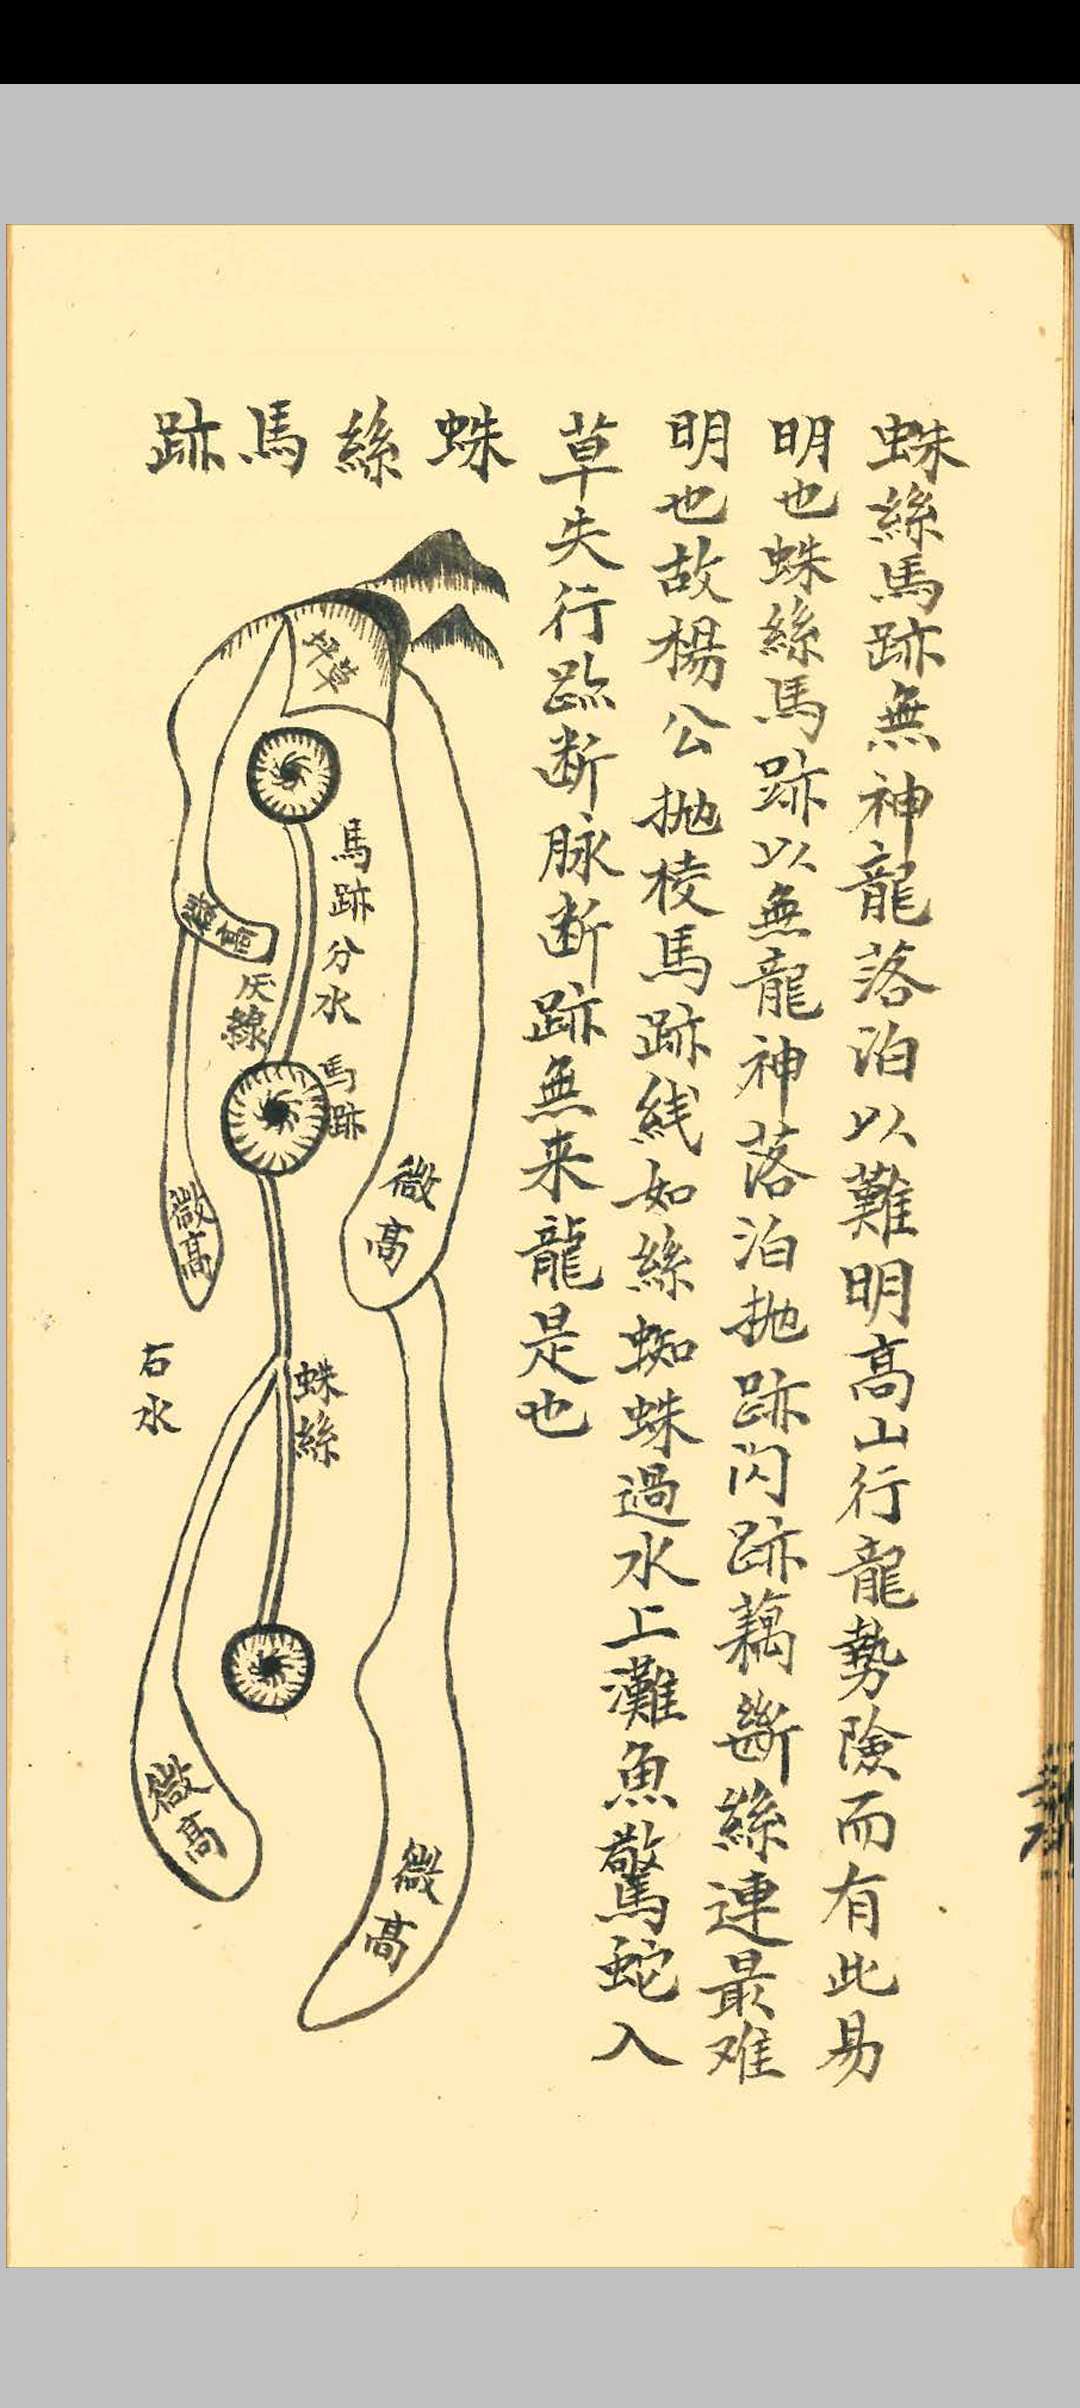 蛛絲馬跡無神龍落泊以難明高山行龍勢險而有此易
明也蛛絲馬跡以無龍神落泊拋跡閃跡藕斷絲連最难
明也故楊公拋棱馬跡綫如絲蜘蛛過水上灘魚驚蛇入
草失行跡断脉断跡無来龍是也
蛛絲馬跡
馬跡分水
馬跡
微高
微高
蛛絲
微高
微高
石水